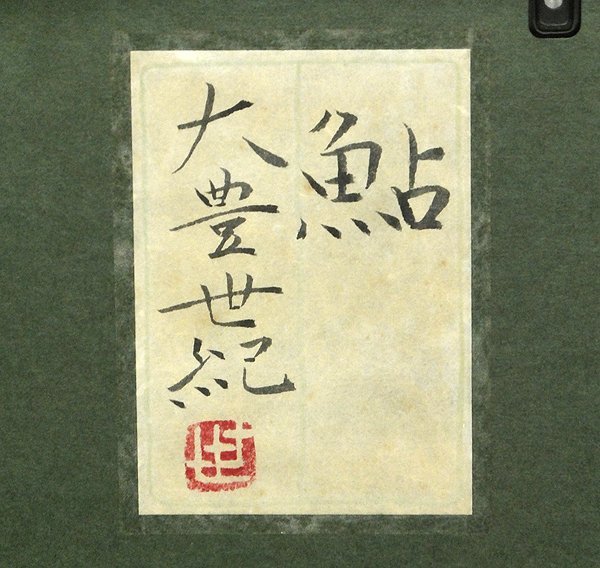 鮎
大豊世紀